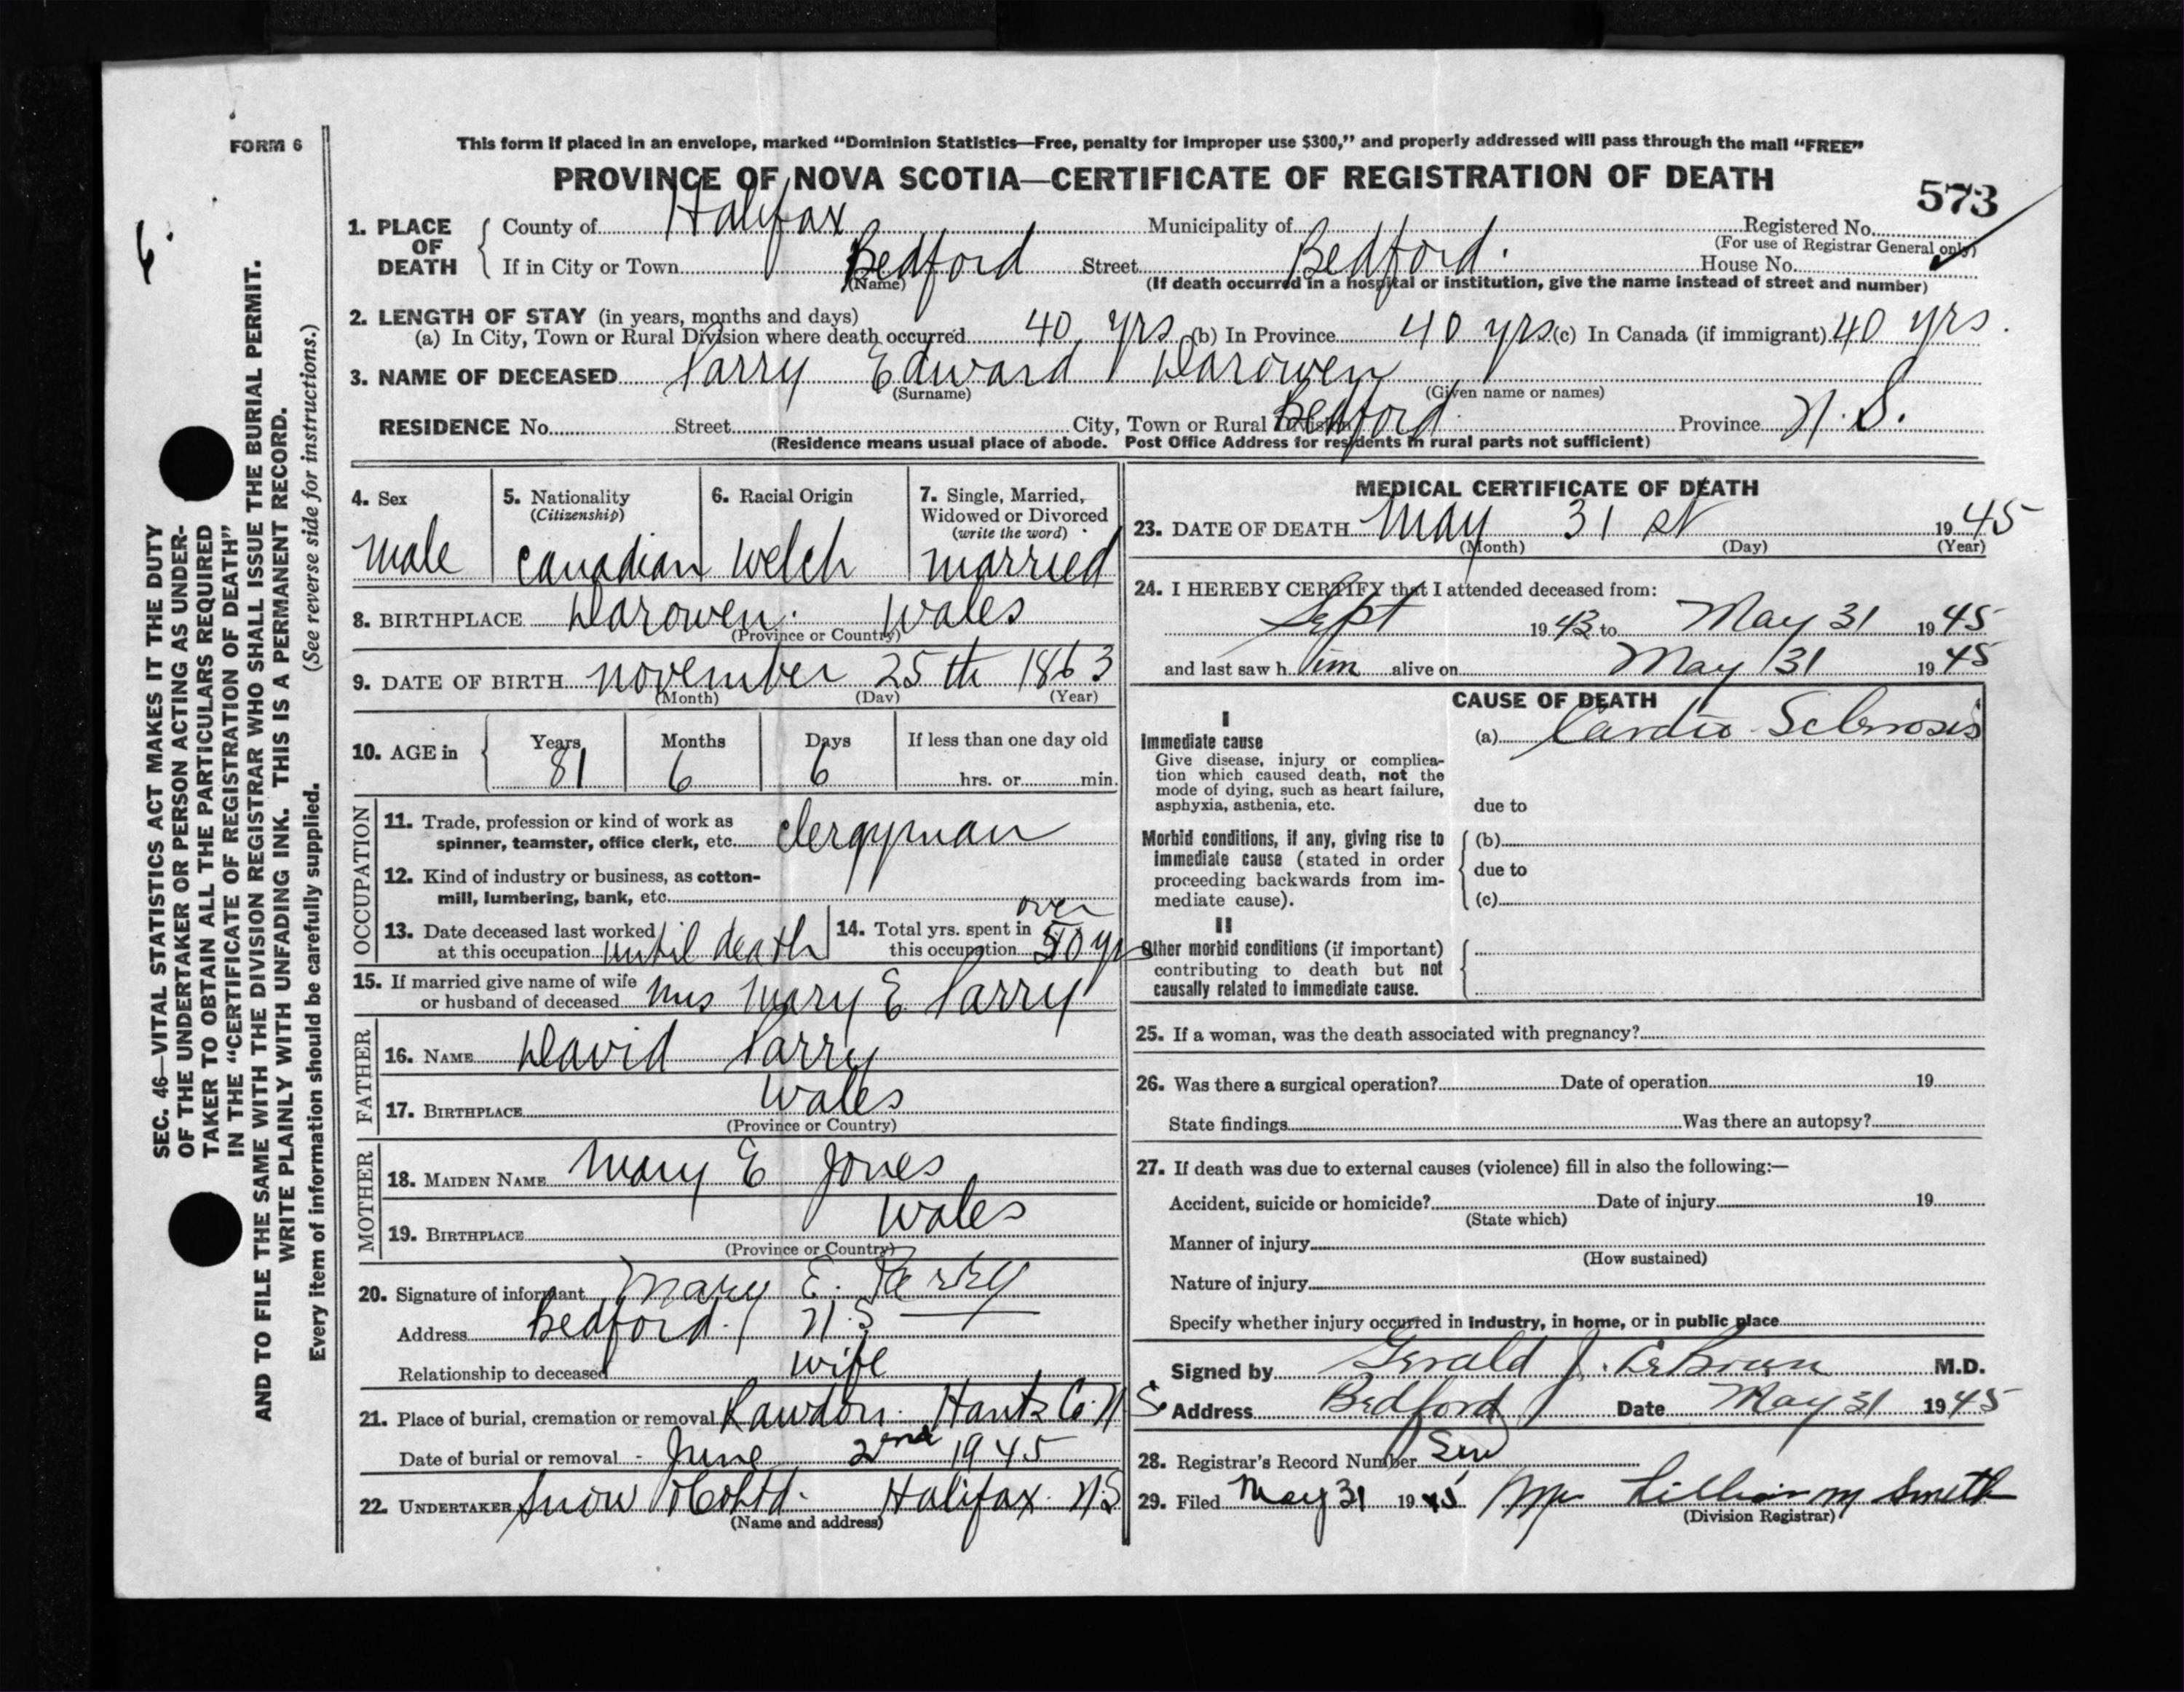 FORM 6
This form if placed in an envelope, marked "Dominion Statistics—Free, penalty for improper use $300," and properly addressed will pass through the mail "FREE"
PROVINCE OF NOVA SCOTIA—CERTIFICATE OF REGISTRATION OF DEATH
573
1. PLACE OF DEATH County of Halifax Municipality of Bedford. Registered No.
(For use of Registrar General only)
If in City or Town Bedford Street House No.
(Name) (If death occurred in a hospital or institution, give the name instead of street and number)
2. LENGTH OF STAY (in years, months and days)
(a) In City, Town or Rural Division where death occurred 40 yrs (b) In Province 40 yrs (c) In Canada (if immigrant) 40 yrs.
3. NAME OF DECEASED Parry Edward Darowen
(Surname) (Given name or names)
RESIDENCE No. Street City, Town or Rural Division Bedford. Province N.S.
(Residence means usual place of abode. Post Office Address for residents in rural parts not sufficient)
4. Sex
male
5. Nationality
(Citizenship)
Canadian
6. Racial Origin
Welch
7. Single, Married,
Widowed or Divorced
(write the word)
married
8. BIRTHPLACE Darowen. Wales
(Province or Country)
9. DATE OF BIRTH November 25th 1863
(Month) (Day) (Year)
10. AGE in Years Months Days If less than one day old
81 6 6 hrs. or min.
OCCUPATION
11. Trade, profession or kind of work as
spinner, teamster, office clerk, etc. Clergyman
12. Kind of industry or business, as cotton-
mill, lumbering, bank, etc.
13. Date deceased last worked
at this occupation until death
14. Total yrs. spent in over
this occupation 50 yrs
15. If married give name of wife
or husband of deceased Mrs Mary E Parry
FATHER
16. NAME David Parry
17. BIRTHPLACE Wales
(Province or Country)
MOTHER
18. MAIDEN NAME Mary E Jones
19. BIRTHPLACE Wales
(Province or Country)
20. Signature of informant Mary E. Parry
Address Bedford. N.S
Relationship to deceased wife
21. Place of burial, cremation or removal Rawdon. Hants Co. N.S.
Date of burial or removal - June 2nd 1945
22. UNDERTAKER Snow & Co Ltd. Halifax. N.S
(Name and address)
MEDICAL CERTIFICATE OF DEATH
23. DATE OF DEATH May 31st 1945
(Month) (Day) (Year)
24. I HEREBY CERTIFY that I attended deceased from:
Sept 1943 to May 31 1945
and last saw him alive on May 31 1945
CAUSE OF DEATH
I
Immediate cause
Give disease, injury or complica-
tion which caused death, not the
mode of dying, such as heart failure,
asphyxia, asthenia, etc.
(a) Cardio Sclerosis
due to
Morbid conditions, if any, giving rise to
immediate cause (stated in order
proceeding backwards from im-
mediate cause).
(b)
due to
(c)
II
Other morbid conditions (if important)
contributing to death but not
causally related to immediate cause.
25. If a woman, was the death associated with pregnancy?
26. Was there a surgical operation? Date of operation 19
State findings Was there an autopsy?
27. If death was due to external causes (violence) fill in also the following:—
Accident, suicide or homicide? Date of injury 19
(State which)
Manner of injury
(How sustained)
Nature of injury
Specify whether injury occurred in industry, in home, or in public place
Signed by Gerald J. LeBrun M.D.
Address Bedford Date May 31 1945
28. Registrar's Record Number
29. Filed May 31 1945 Lillian M Smith
(Division Registrar)
SEC. 46—VITAL STATISTICS ACT MAKES IT THE DUTY
OF THE UNDERTAKER OR PERSON ACTING AS UNDER-
TAKER TO OBTAIN ALL THE PARTICULARS REQUIRED
IN THE "CERTIFICATE OF REGISTRATION OF DEATH"
AND TO FILE THE SAME WITH THE DIVISION REGISTRAR WHO SHALL ISSUE THE BURIAL PERMIT.
WRITE PLAINLY WITH UNFADING INK. THIS IS A PERMANENT RECORD.
Every item of information should be carefully supplied. (See reverse side for instructions.)